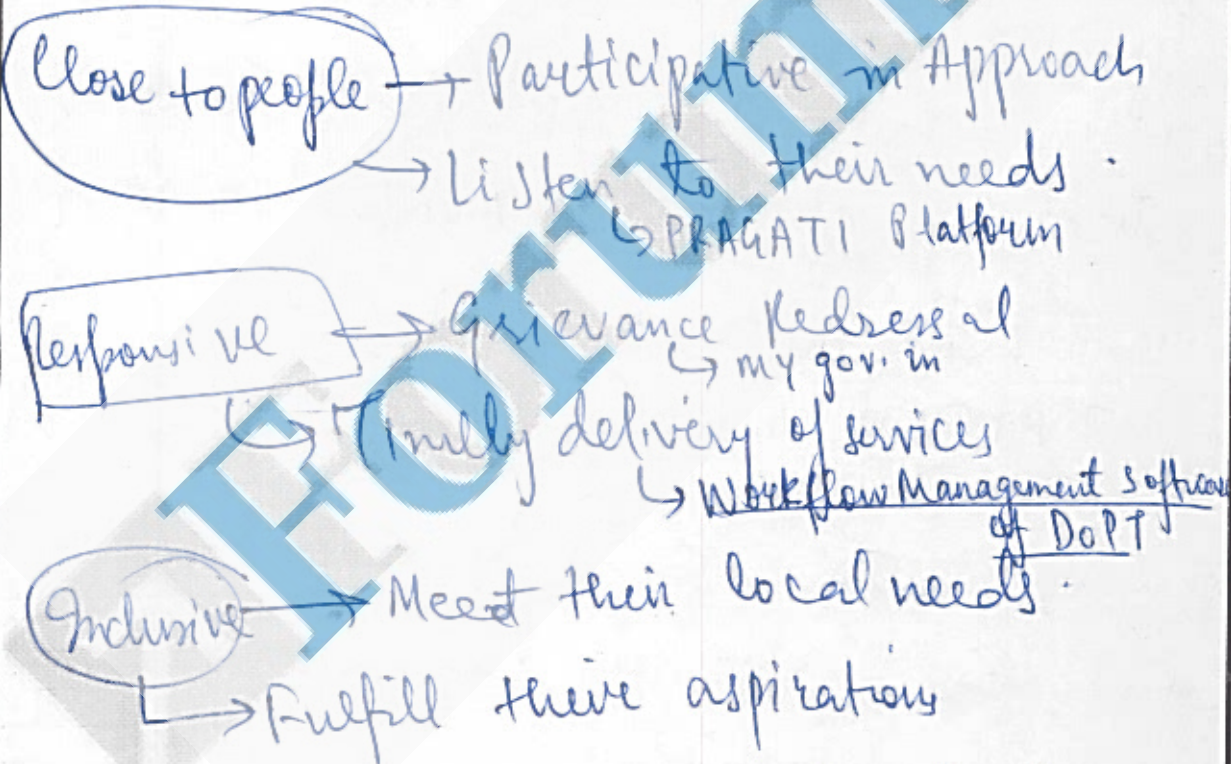 Close to people → Participative in Approach
→ Listen to their needs.
↳ PRAGATI Platform
Responsive → Grievance Redressal
↳ my gov. in
↳ Timely delivery of services
↳ Workflow Management Software
of DoPT
Inclusive → Meet their local needs.
↳ Fulfill their aspirations
Forum